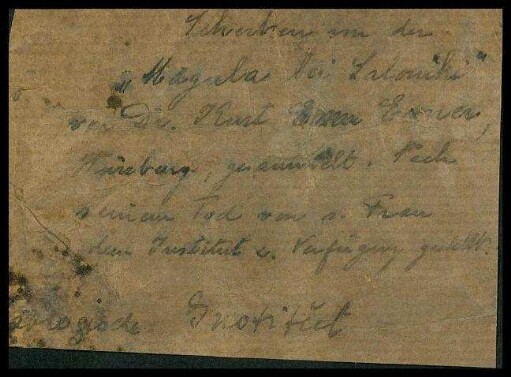 Scherben von der
„Magula bei Saloniki"
von Dr. Kurt Exner,
Würzburg, gesammelt. Nach
seinem Tod von s. Frau
dem Institut z. Verfügung gestellt.
Institut